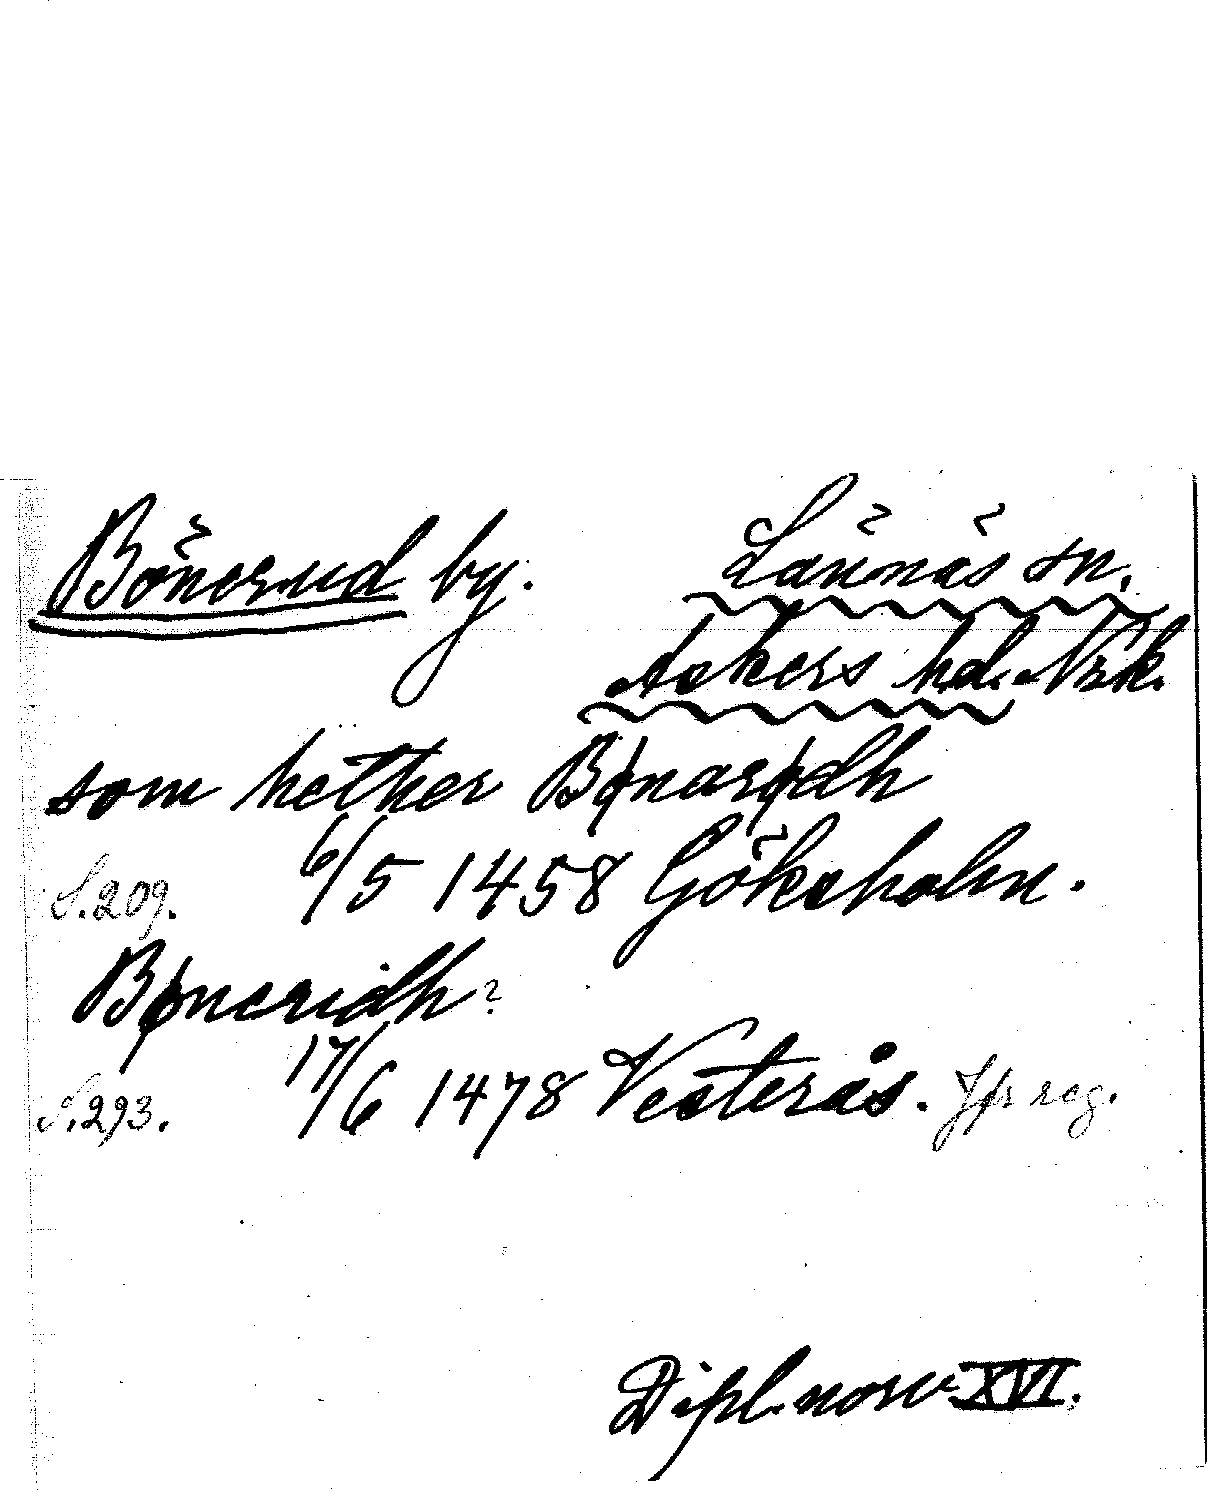 Bönerud by. Lännäs sn.
Askers hd. Närk.
som hether Bønarødh
S. 209. 6/5 1458 Göksholm.
Bøneridh?
S. 293. 17/6 1478 Vesterås. Jfr reg.
Dipl. norv XVI.